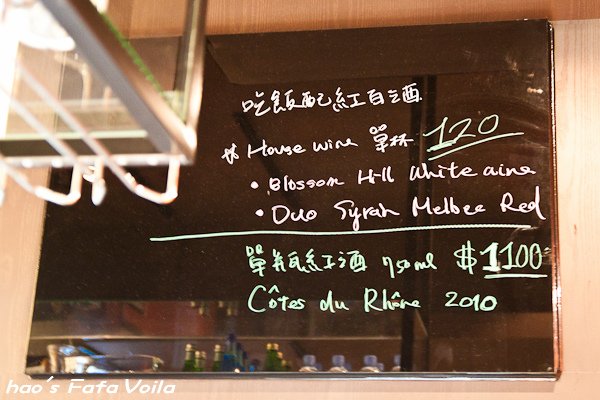 吃飯配紅白酒
# House wine 單杯 120
• Blossom Hill White wine
• Duo Syrah Melbec Red
單瓶紅酒 750ml $1100
Côtes du Rhône 2010
hao's Fafa Voila